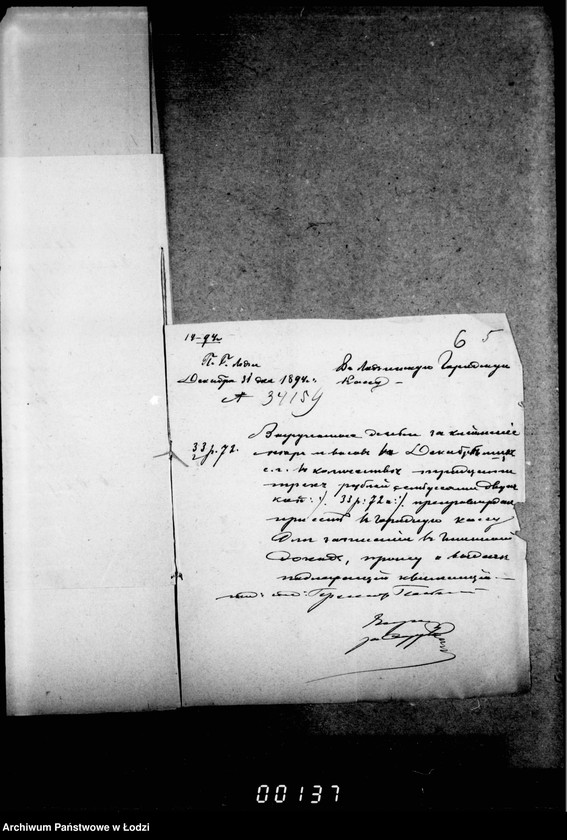 6 5
14-94
П. Г. Лодзи
Декабря 31 дня 1894 г.
№ 34154
Въ Лодзинскую Городскую
Кассу
33 р. 72.
Вырученные деньги за клейменіе
мѣръ и вѣсовъ въ Декабрѣ мѣс.
с. г. въ количествѣ тридцати
трехъ рублей семьдесятъ двухъ
коп: /: 33 р: 72 к :/ препровождая
при семъ въ городскую кассу
для записанія въ
доходъ, прошу о выдачѣ
надлежащей квитанціи
00137
Archiwum Państwowe w Łodzi